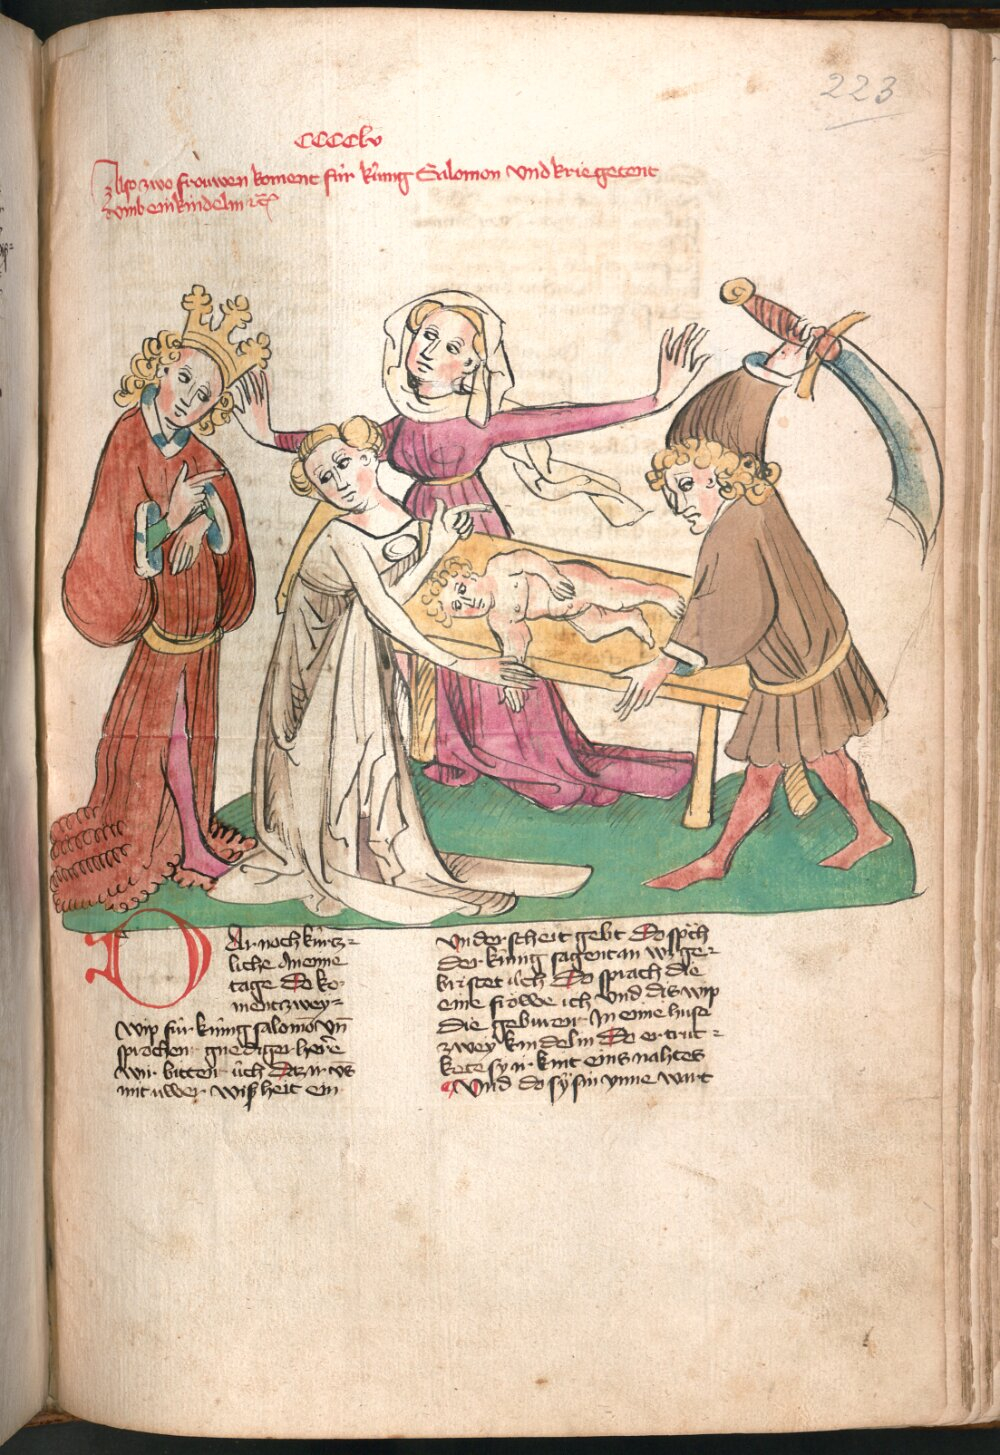 223
CCCClv
Also zwo frouwen koment für künig Salomon vnd kriegetent
vmb ein kindelin ꝛc
DAr noch kürtz=
liche An eime
tage Do ko=
ment zwey=
wip für künig salomō vn̄
sprochen gnediger herre
wir bitten üch Daz ir vns
mit uwer wißheit ein
vnderscheit gebt Do sp̄ch
der künig sagent an wz ge=
bristet üch Do sprach die
eine fröwe ich vnd dis wip
die geburen In eime huse
zwey kindelin Do ertruc=
kete sy ir kint eins nahtes
Vnd do sÿ sin ynne wart